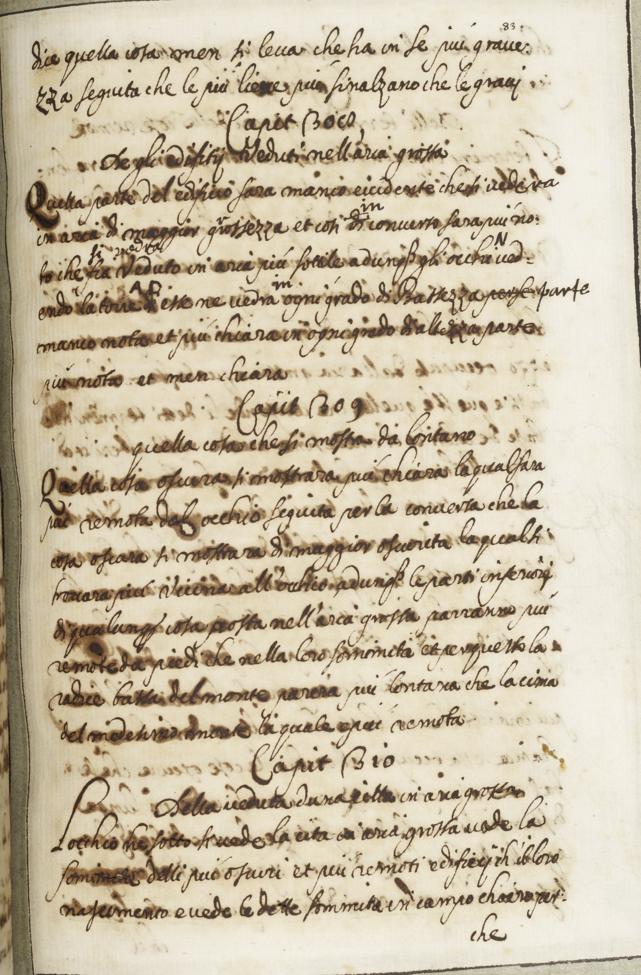 83
dice quella cosa men si leva che ha in se più grave:
zza seguita che le più lieve più s'inalzano che le gravi
Capit 308,
De gli edifitij Veduti nell'aria grossa
Quella parte del edificio sara manco evidente che si vedera
in
in aria di maggior grossezza et cosi di converso sara più no:
si vedra N
to che sia Veduto in aria più sottile adunq3 gli occhi ved=
A D in
endo la torre di esse ne vedra ogni grado di Bassezza parte
manco nota et più chiara in ogni grado di altezza parte
più nota et men chiara
Capit 309
quella cosa che si mostra da lontano
Quella cosa oscura si mostrara più chiara la qual sara
più remota dal occhio seguita per la conversa che la
cosa oscura si mostrara di maggior oscurita la qual si
trovara più Vicina all'occhio adunq3 le parti inferiori
di qualunq3 cosa posta nell'aria grossa parranno più
remote da piedi che nella loro sommita et per questo la
radice bassa del monte parera più lontana che la cima
del medesimo monte la quale e più remota
Capit 310
Della veduta duna citta in aria grossa
Locchio che sotto si vede la cita in aria grossa vede la
sommita delli più oscuri et più remoti edificij il loro
nascimento e vede le dette sommita in campo chiaro per:
che